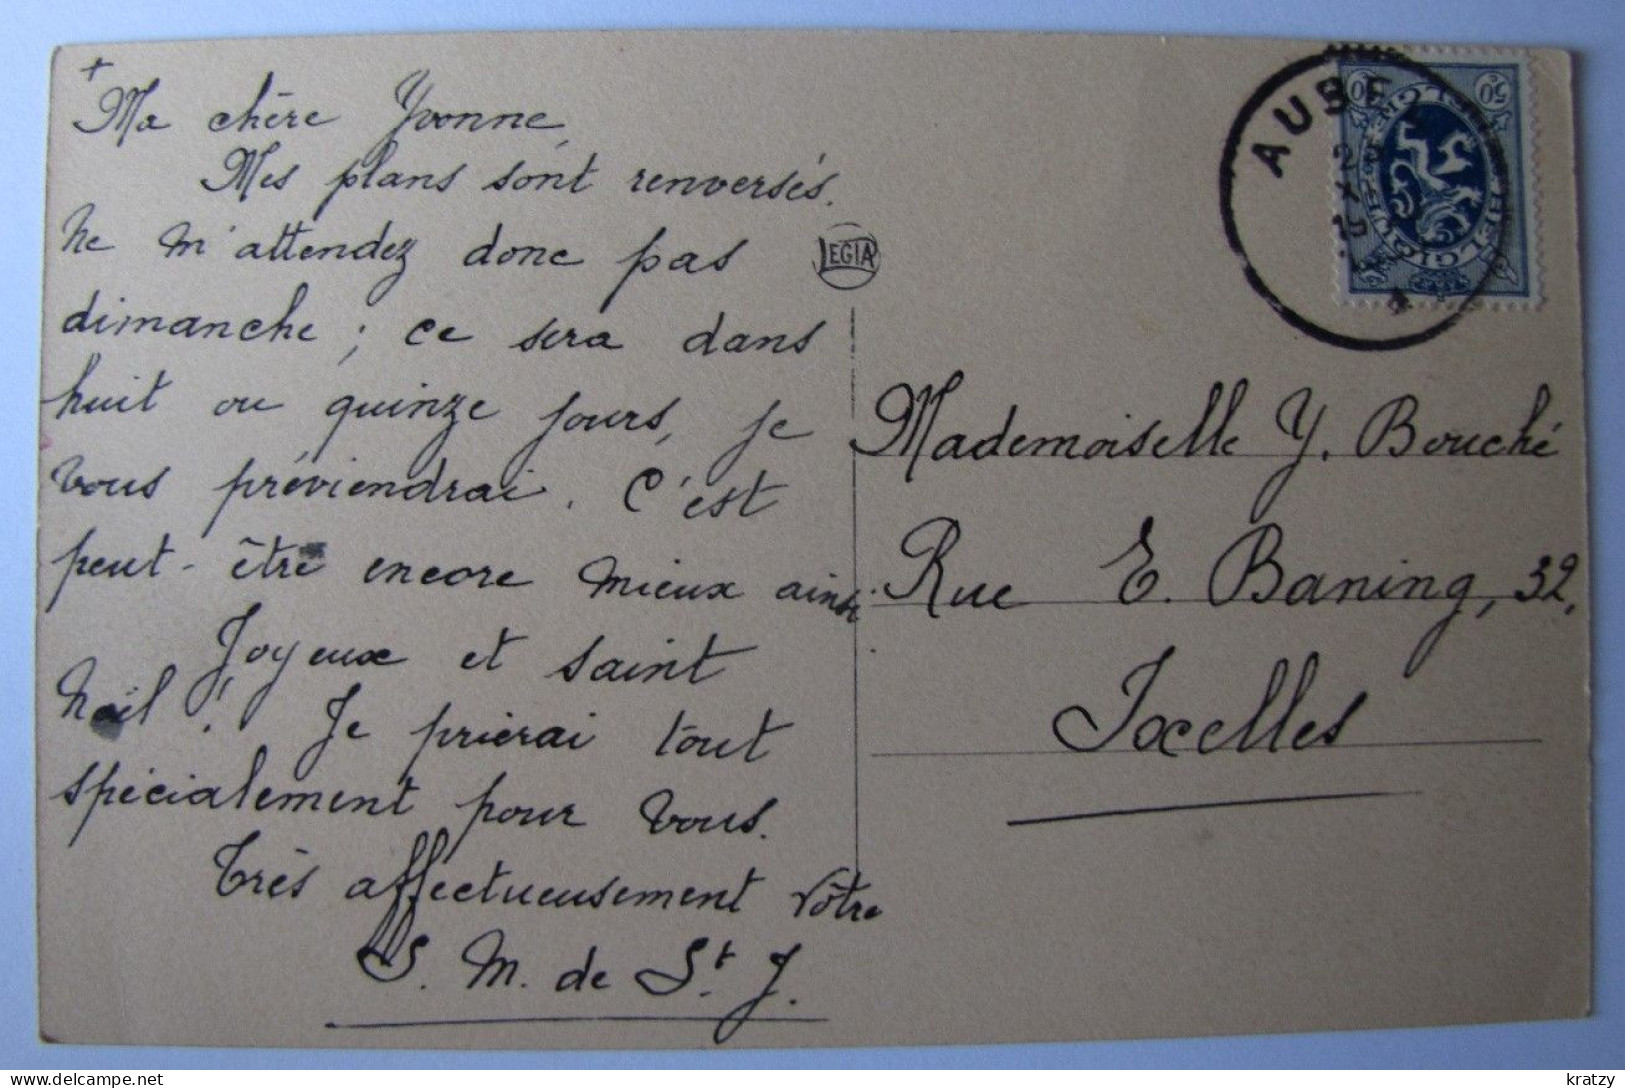 +
Ma chère Yvonne,
Mes plans sont renversés.
Ne m'attendez donc pas
dimanche ; ce sera dans
huit ou quinze jours, je
vous préviendrai. C'est
peut-être encore mieux ainsi.
Joyeux et saint
Noël ! Je prierai tout
spécialement pour vous.
Très affectueusement vôtre
S. M. de St. J.
LEGIA
AUBE
50
BELGIQUE
BELGIE
Mademoiselle Y. Bouché
Rue E. Baning, 32,
Ixelles
kratzy